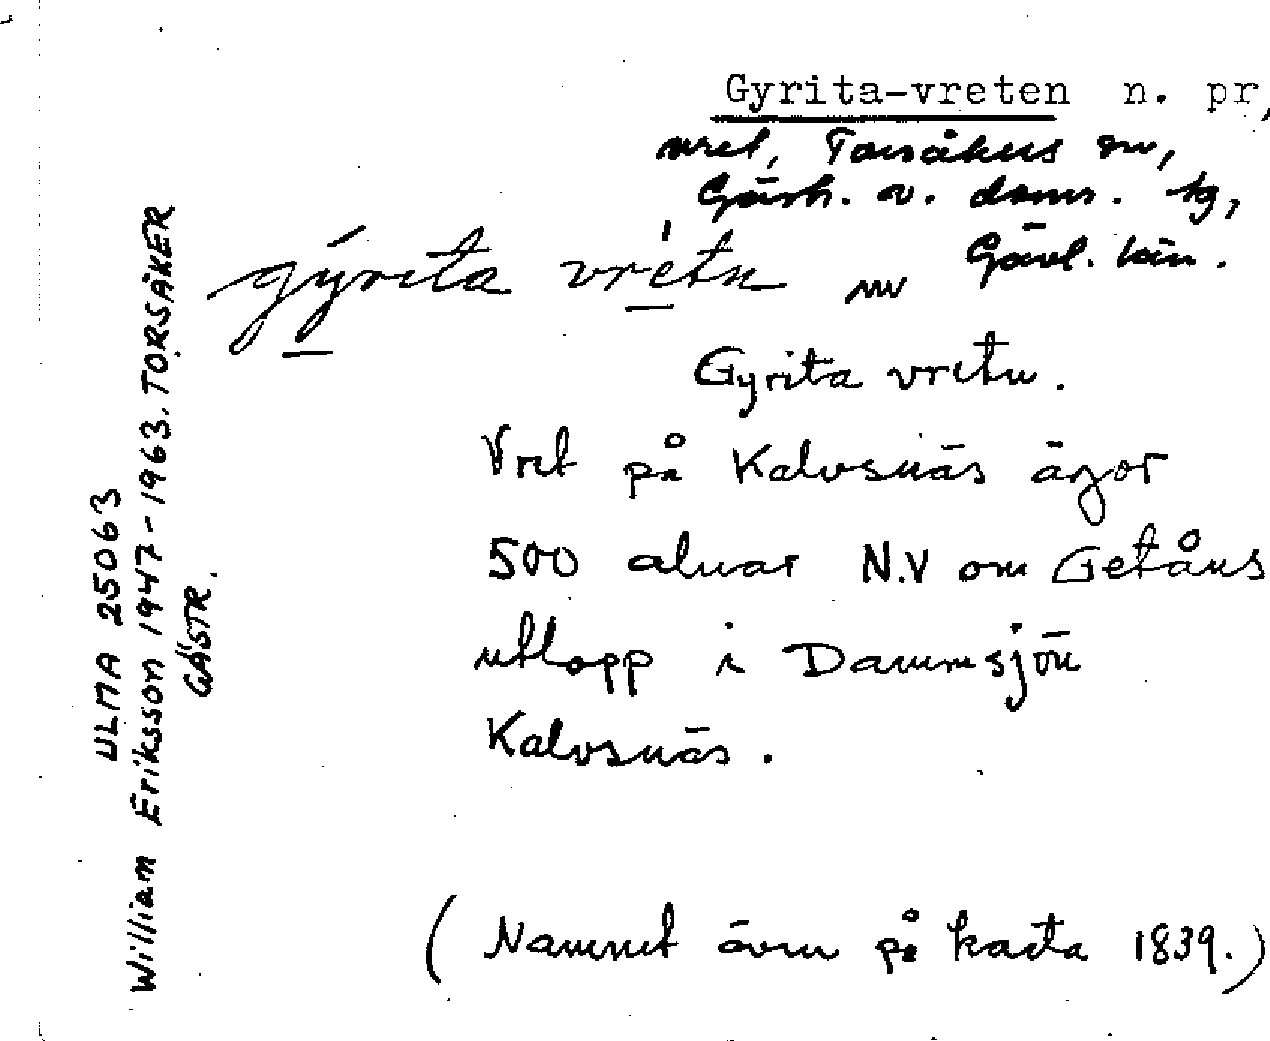 Gyrita-vreten n. pr,
vret, Torsåkers sn,
Gästr. v. doms. tg,
Gävl. län.
gýrita vrétn nv
Gyrita vretn.
Vret på Kalvsnäs ägor
500 alnar N.V om Getåns
utlopp i Dammsjön
Kalvsnäs.
(Namnet även på karta 1839.)
ULMA 25063
William Eriksson 1947-1963. TORSÅKER
GÄSTR.